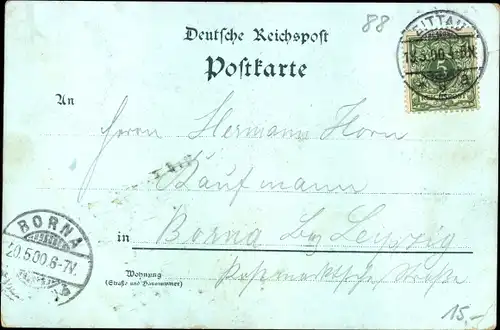 88
Deutsche Reichspost
Postkarte
ZITTAU
19.5.00.
5
An
Herrn Hermann Horn
Kaufmann
in Borna bei Leipzig
BORNA
20.5.00.6-7V.
Wohnung
(Straße und Hausnummer)
Straße
15.-